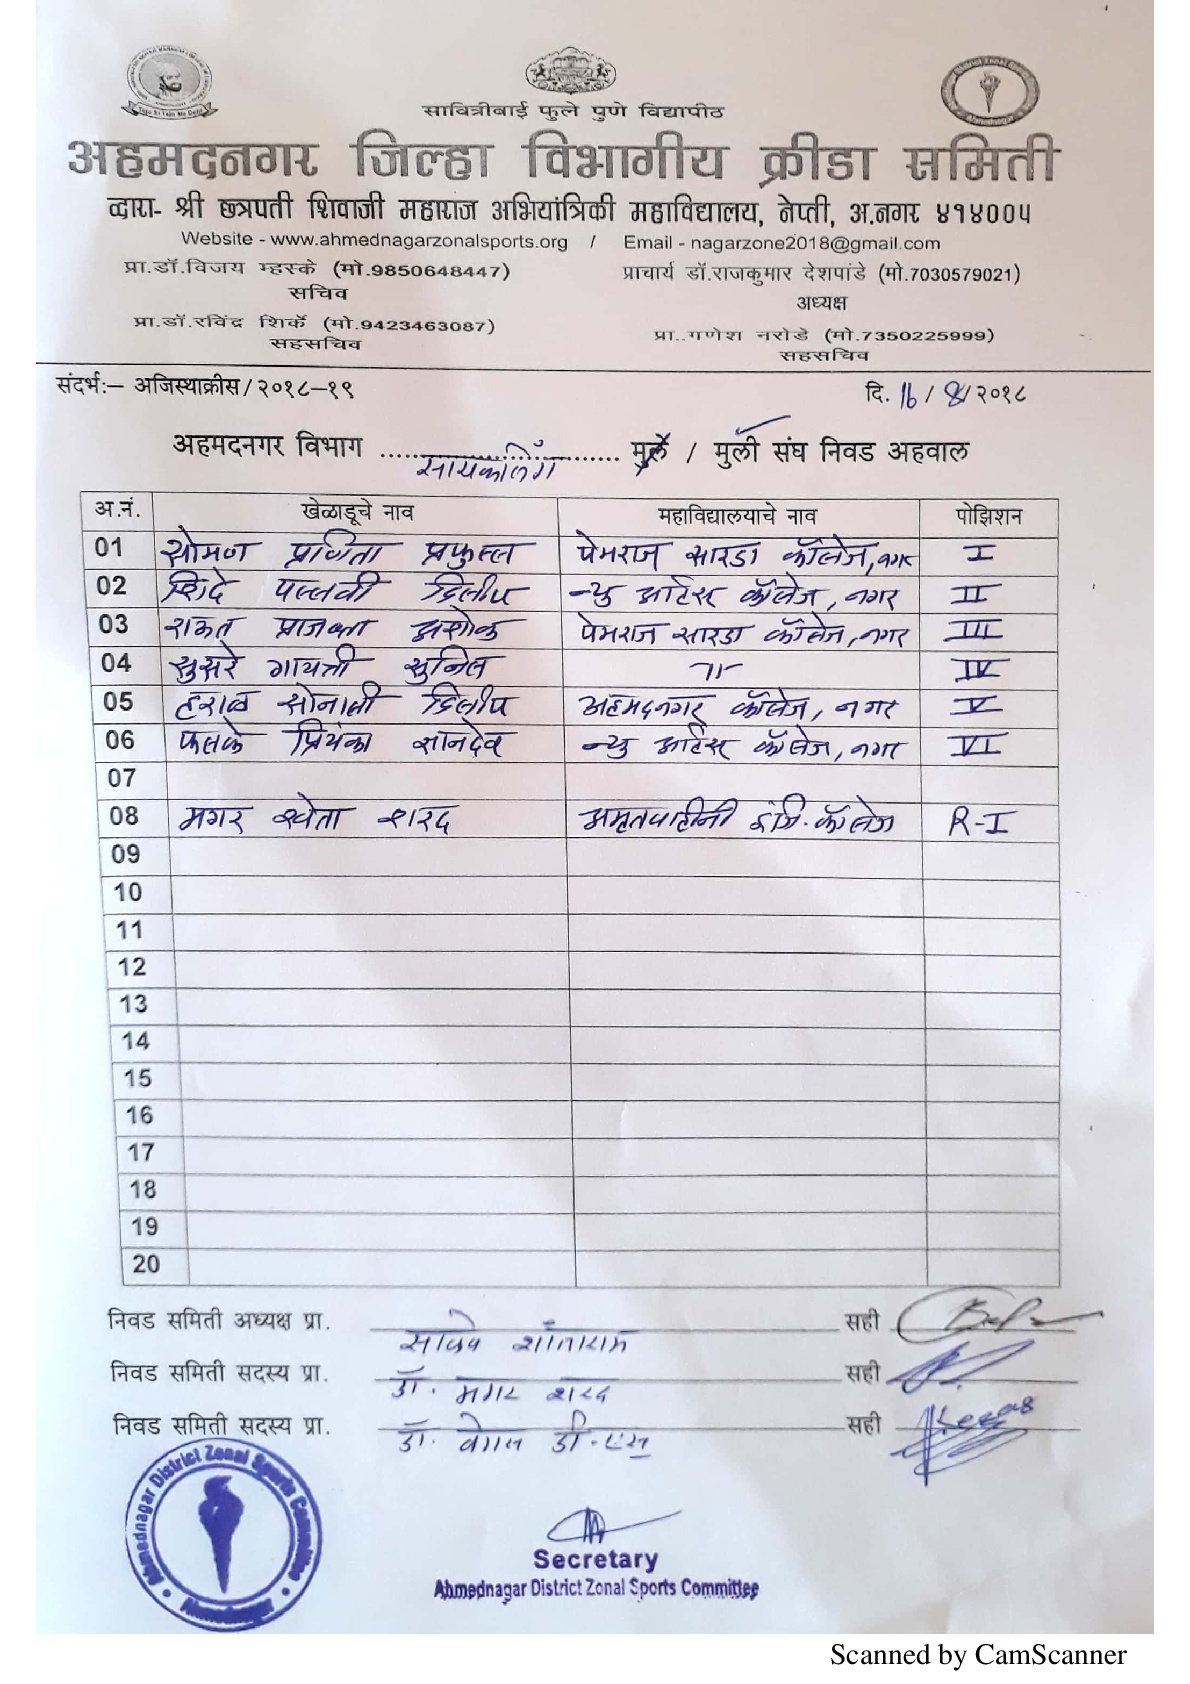 सावित्रीबाई फुले पुणे विद्यापीठ
अहमदनगर जिल्हा विभागीय क्रीडा समिती
व्दारा- श्री छत्रपती शिवाजी महाराज अभियांत्रिकी महाविद्यालय, नेप्ती, अ.नगर ४१४००५
Website - www.ahmednagarzonalsports.org / Email - nagarzone2018@gmail.com
प्रा.डॉ.विजय म्हस्के (मो.9850648447) प्राचार्य डॉ.राजकुमार देशपांडे (मो.7030579021)
सचिव अध्यक्ष
प्रा.डॉ.रविंद्र शिर्के (मो.9423463087) प्रा..गणेश नरोडे (मो.7350225999)
सहसचिव सहसचिव
संदर्भ:– अजिस्थाक्रीस/२०१८–१९ दि. 16 / 8/२०१८
अहमदनगर विभाग ....सायकलिंग.... मुले / मुली संघ निवड अहवाल
अ.नं. खेळाडूचे नाव महाविद्यालयाचे नाव पोझिशन
01 सोमण प्रणिता प्रफुल्ल पेमराज सारडा कॉलेज, नगर I
02 शिंदे पल्लवी दिलीप न्यु आर्टस् कॉलेज, नगर II
03 राऊत प्राजक्ता अशोक पेमराज सारडा कॉलेज, नगर III
04 सुसरे गायत्री सुनिल –״– IV
05 हराळ सोनाली दिलीप अहमदनगर कॉलेज, नगर V
06 फलके प्रियंका ज्ञानदेव न्यु आर्टस् कॉलेज, नगर VI
07
08 मगर श्वेता शरद अमृतवाहीनी इंजि. कॉलेज R-I
09
10
11
12
13
14
15
16
17
18
19
20
निवड समिती अध्यक्ष प्रा. सही
निवड समिती सदस्य प्रा. डॉ. मगर शरद सही
निवड समिती सदस्य प्रा. डॉ. डी.एस सही
Ahmednagar District Zonal Sports Committee
Ahmednagar
Secretary
Ahmednagar District Zonal Sports Committee
Scanned by CamScanner